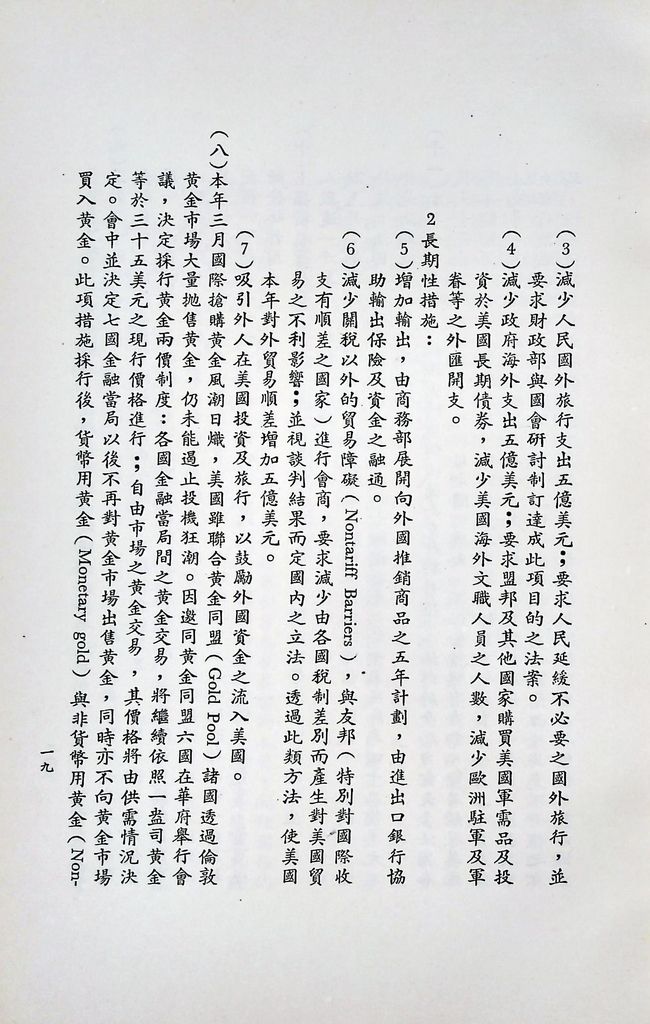 （3）減少人民國外旅行支出五億美元；要求人民延緩不必要之國外旅行，並
要求財政部與國會研討制訂達成此項目的之法案。
（4）減少政府海外支出五億美元；要求盟邦及其他國家購買美國軍需品及投
資於美國長期債券，減少美國海外文職人員之人數，減少歐洲駐軍及軍
眷等之外匯開支。
2長期性措施：
（5）增加輸出，由商務部展開向外國推銷商品之五年計劃，由進出口銀行協
助輸出保險及資金之融通。
（6）減少關稅以外的貿易障礙（Nontariff Barriers），與友邦（特別對國際收
支有順差之國家）進行會商，要求減少由各國稅制差別而產生對美國貿
易之不利影響；並視談判結果而定國內之立法。透過此類方法，使美國
本年對外貿易順差增加五億美元。
（7）吸引外人在美國投資及旅行，以鼓勵外國資金之流入美國。
（八）本年三月國際搶購黃金風潮日熾，美國雖聯合黃金同盟（Gold Pool）諸國透過倫敦
黃金市場大量拋售黃金，仍未能遏止投機狂潮。因邀同黃金同盟六國在華府舉行會
議，決定採行黃金兩價制度：各國金融當局間之黃金交易，將繼續依照一盎司黃金
等於三十五美元之現行價格進行；自由市場之黃金交易，其價格將由供需情況決
定。會中並決定七國金融當局以後不再對黃金市場出售黃金，同時亦不向黃金市場
買入黃金。此項措施採行後，貨幣用黃金（Monetary gold）與非貨幣用黃金（Non-
一九